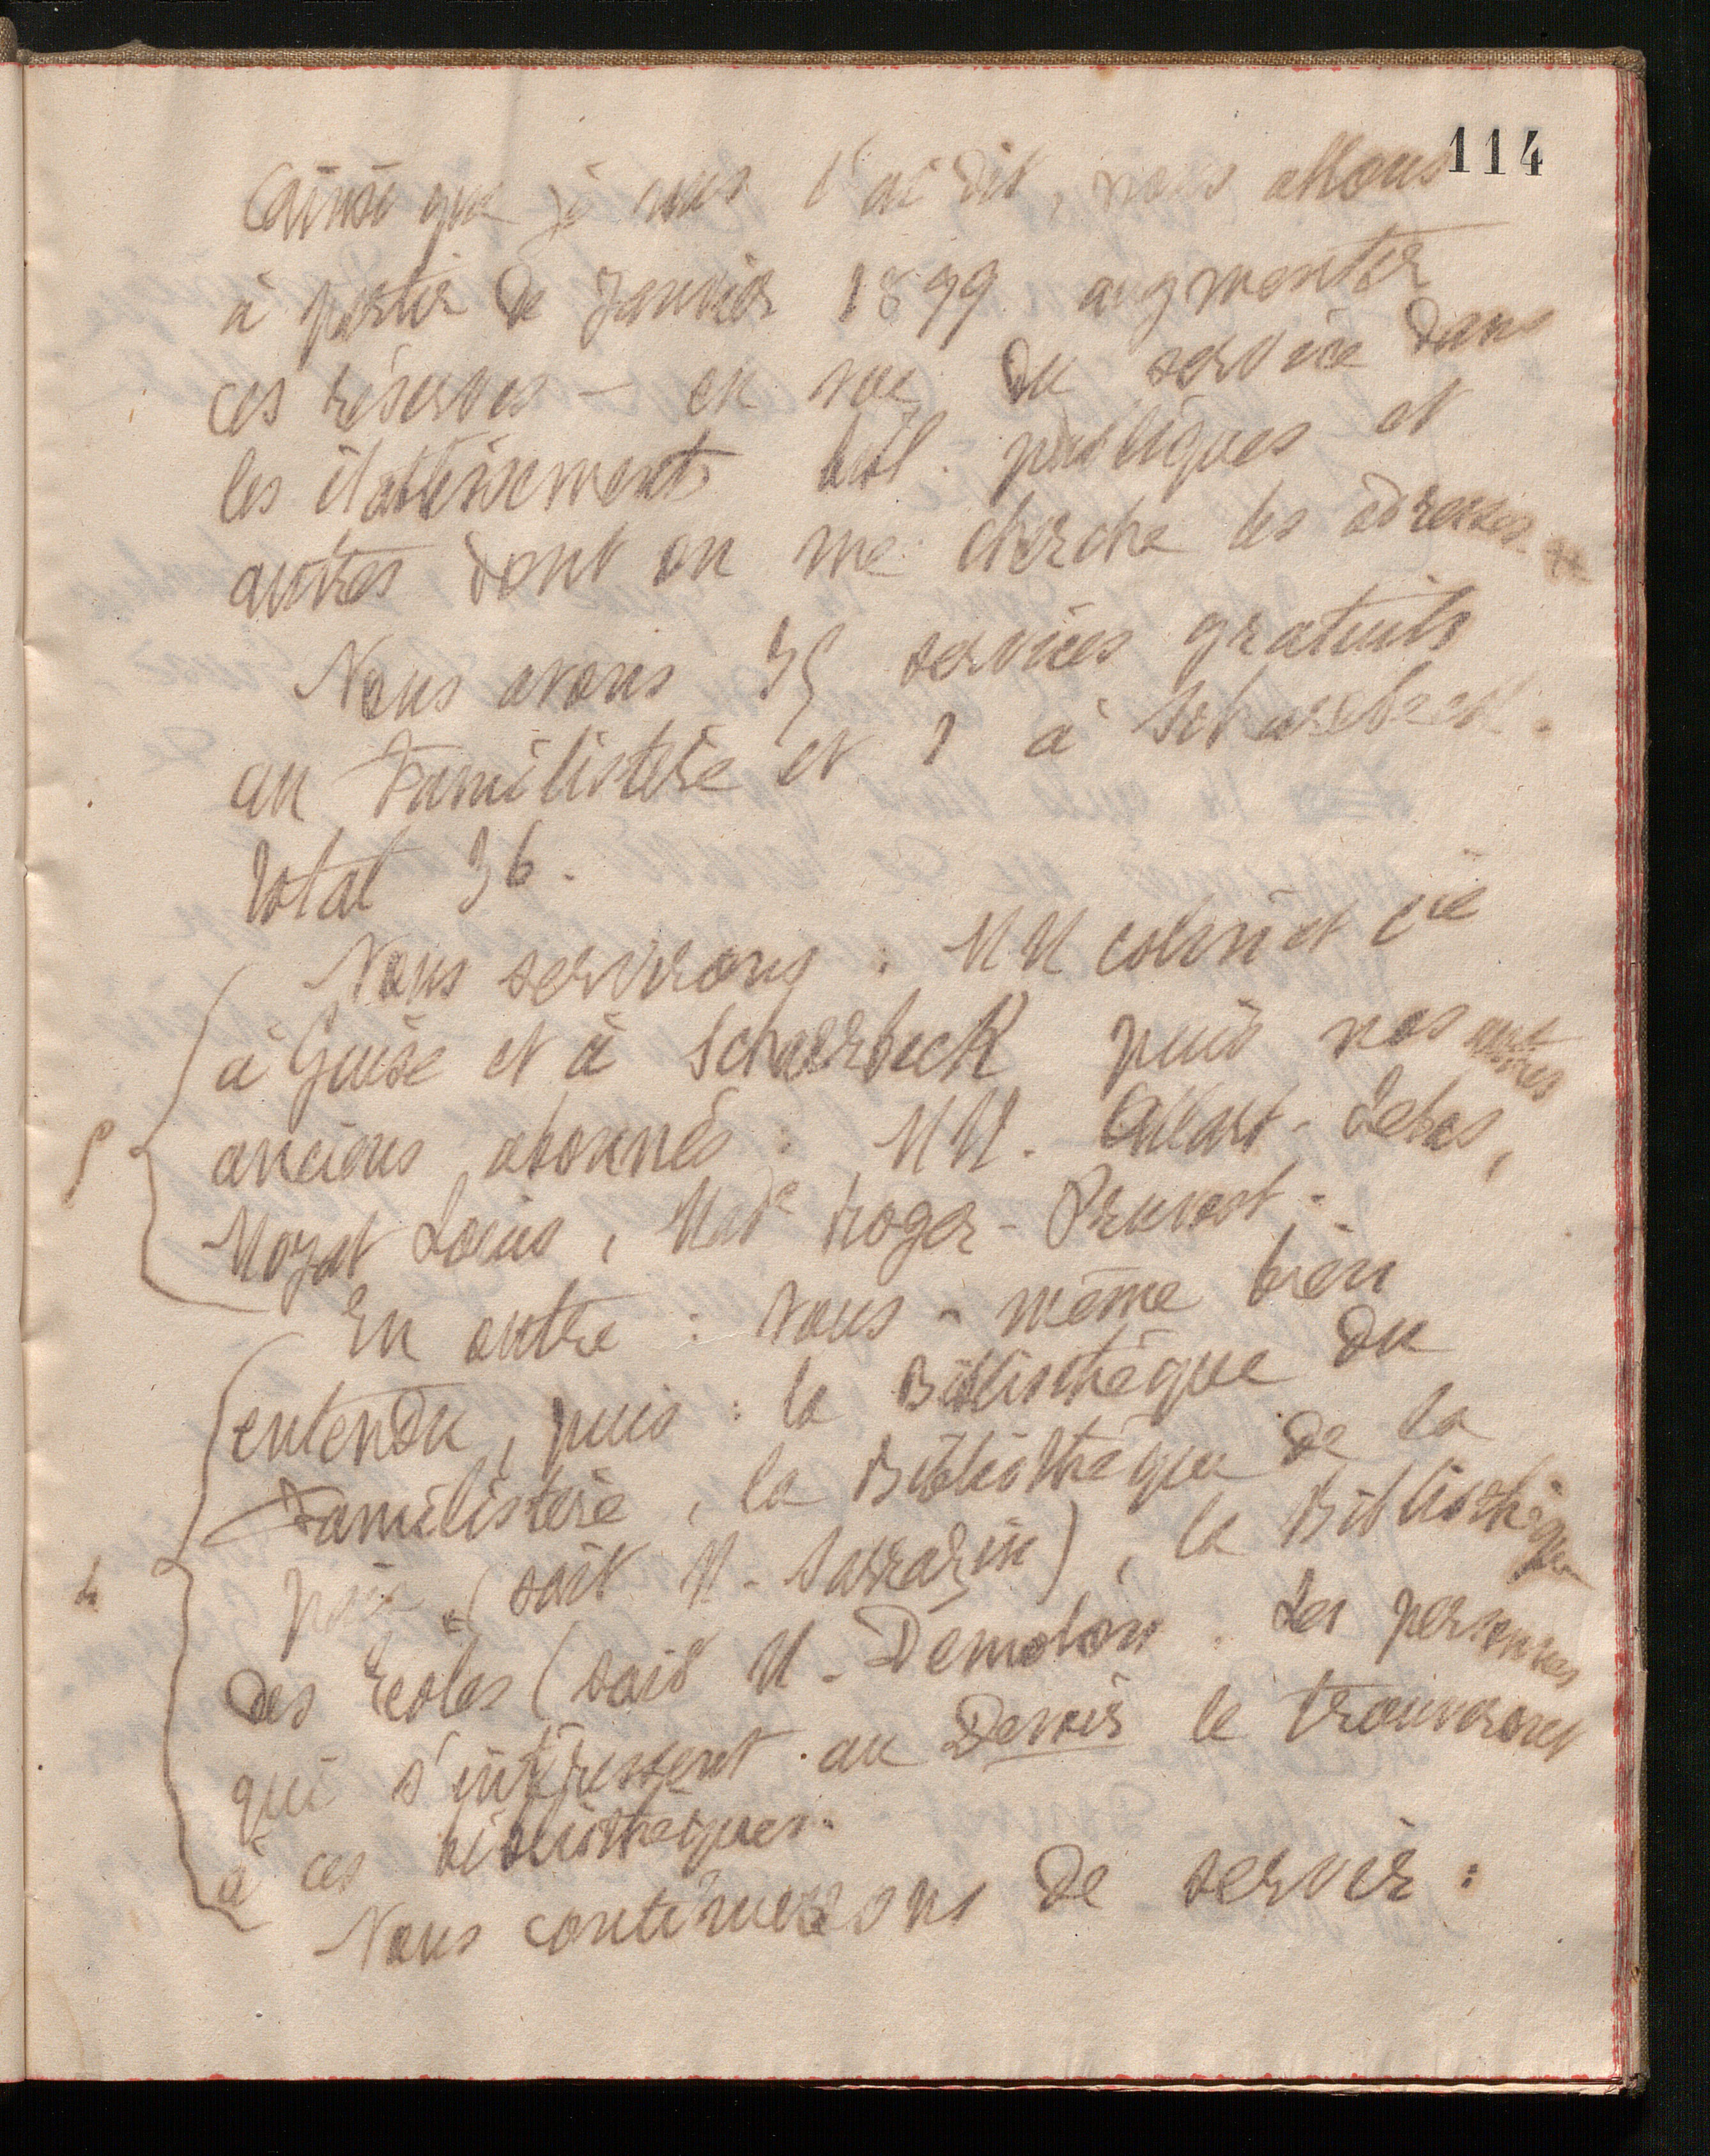 114
Ainsi que je vous l'ai dit, nous allons
à partir de Janvier 1899 augmenter
ces réserves - en vue du service dans
les établissements bibl. publiques et
autres dont on me cherche les adresses.
Nous avons 35 services gratuits
au Familistère et 1 à Schaerbeek.
Total 36.
Nous servirons : MM Colin et Cie
à Guise et à Schaerbeck puis nos autres
anciens abonnés : MM. Allart-Lebas,
Moyat Louis, Made Roger-Pruvost.
5
En outre : vous-même bien
entendu, puis : la Bibliothèque du
Familistère, la Bibliothèque de la
paix (soit M. Sarrazin), la Bibliothèque
4
des Ecoles (soit M. Demolon. Les personnes
qui s'intéressent au Devoir le trouveront
à ces bibliothèques.
Nous continuerons de servir :